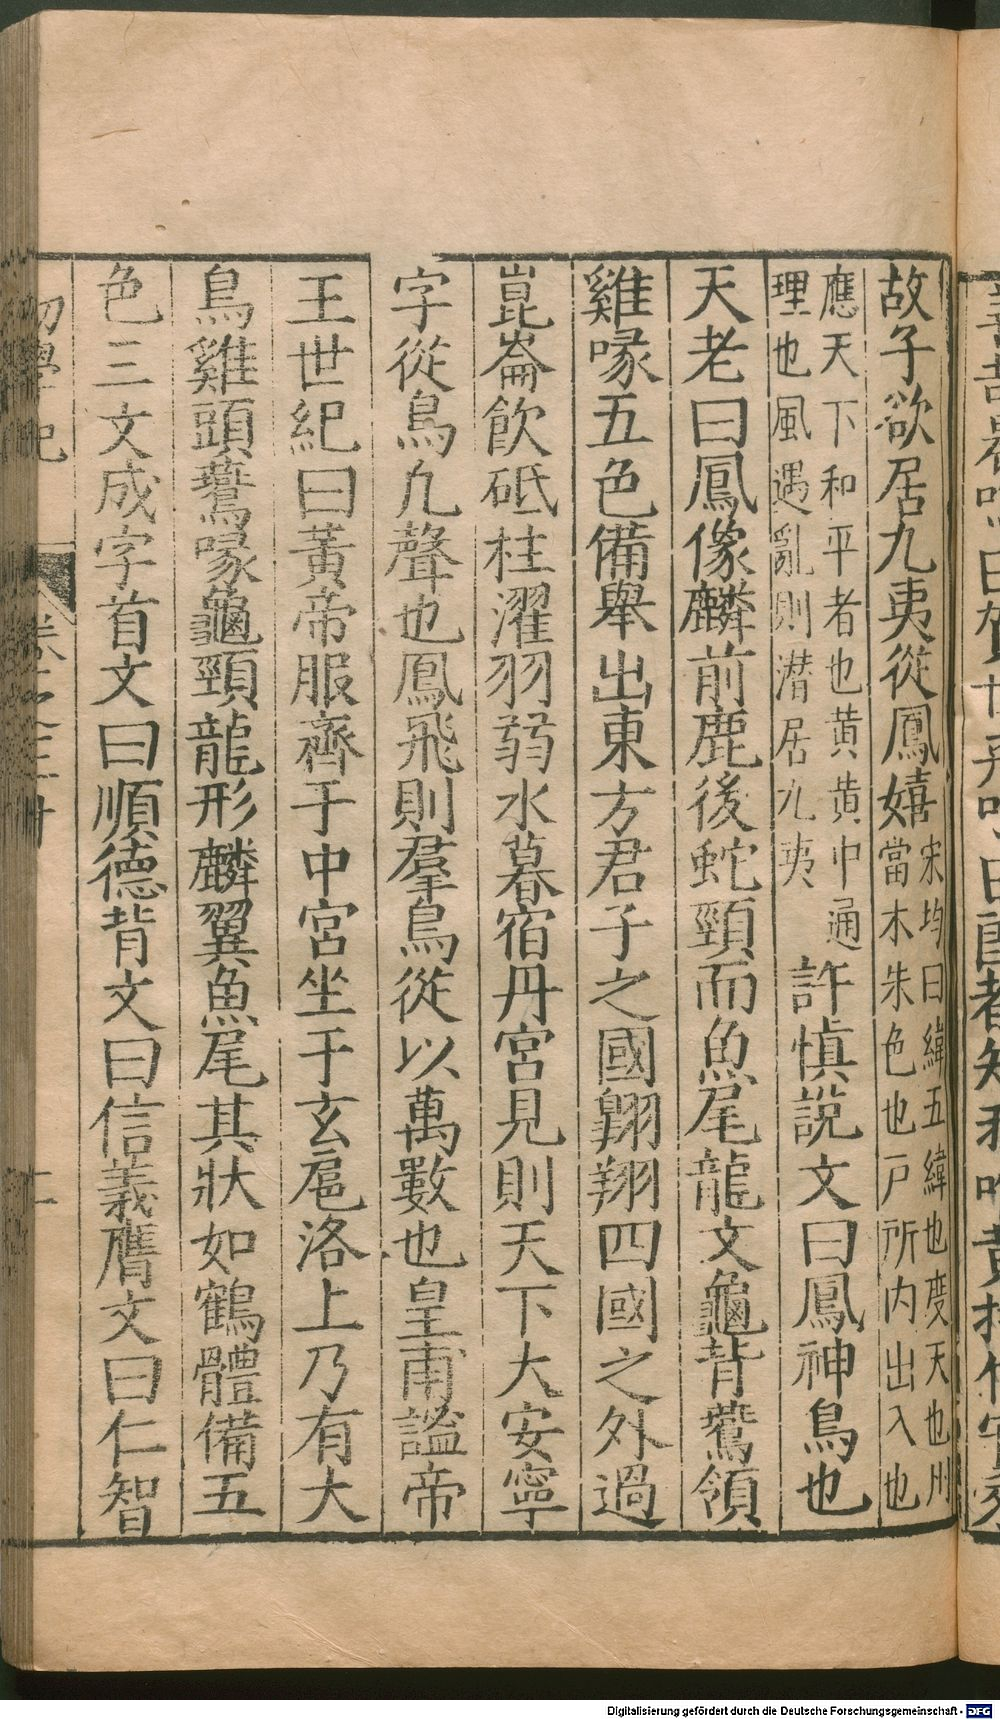 故子欲居九夷從鳳嬉宋均曰緯五緯也度天也州
當木朱色也戸所内出入也
應天下和平者也黃黃中通
理也風遇亂則潛居九夷
許慎說文曰鳳神鳥也
天老曰鳳像麟前鹿後蛇頸而魚尾龍文龜背鷰頷
雞喙五色備舉出東方君子之國翺翔四國之外過
崑崙飲砥柱濯羽弱水暮宿丹宮見則天下大安寧
字從鳥凢聲也鳳飛則羣鳥從以萬數也皇甫謐帝
王世紀曰黃帝服齊于中宮坐于玄扈洛上乃有大
鳥雞頭鷰喙龜頸龍形麟翼魚尾其狀如鶴體備五
色三文成字首文曰順德背文曰信義膺文曰仁智
初學記
卷之三十
Digitalisierung gefördert durch die Deutsche Forschungsgemeinschaft - DFG